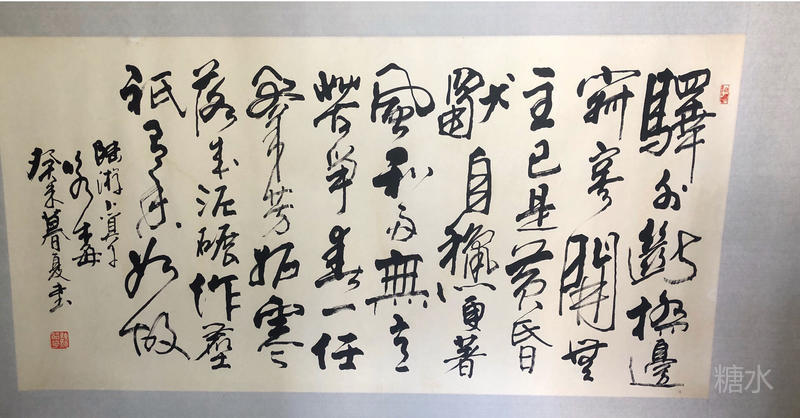 驛外斷橋邊
寂寞開無
主已是黄昏
獨自愁更著
風和雨無意
苦爭春一任
群芳妒零
落成泥碾作塵
祇有香如故
陸游卜算子
咏梅
癸未暮夏書
糖水